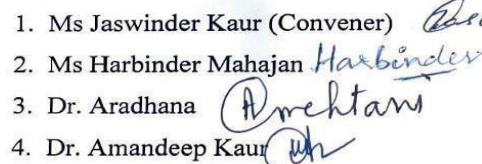 1. Ms Jaswinder Kaur (Convener)
2. Ms Harbinder Mahajan Harbinder
3. Dr. Aradhana
4. Dr. Amandeep Kaur